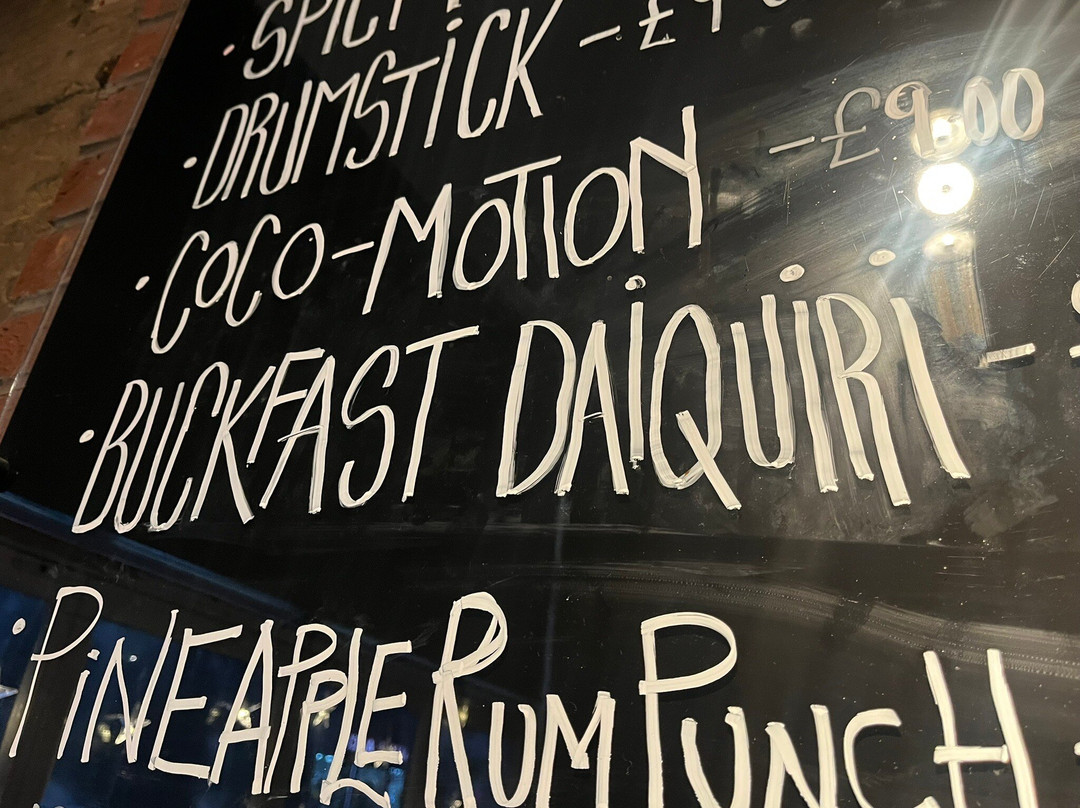 · SPICY
· DRUMSTiCK - £9
· COCO-MOTION - £9.00
· BUCKFAST DAiQUiRi -
· PiNEAPPLE RUM PUNCH